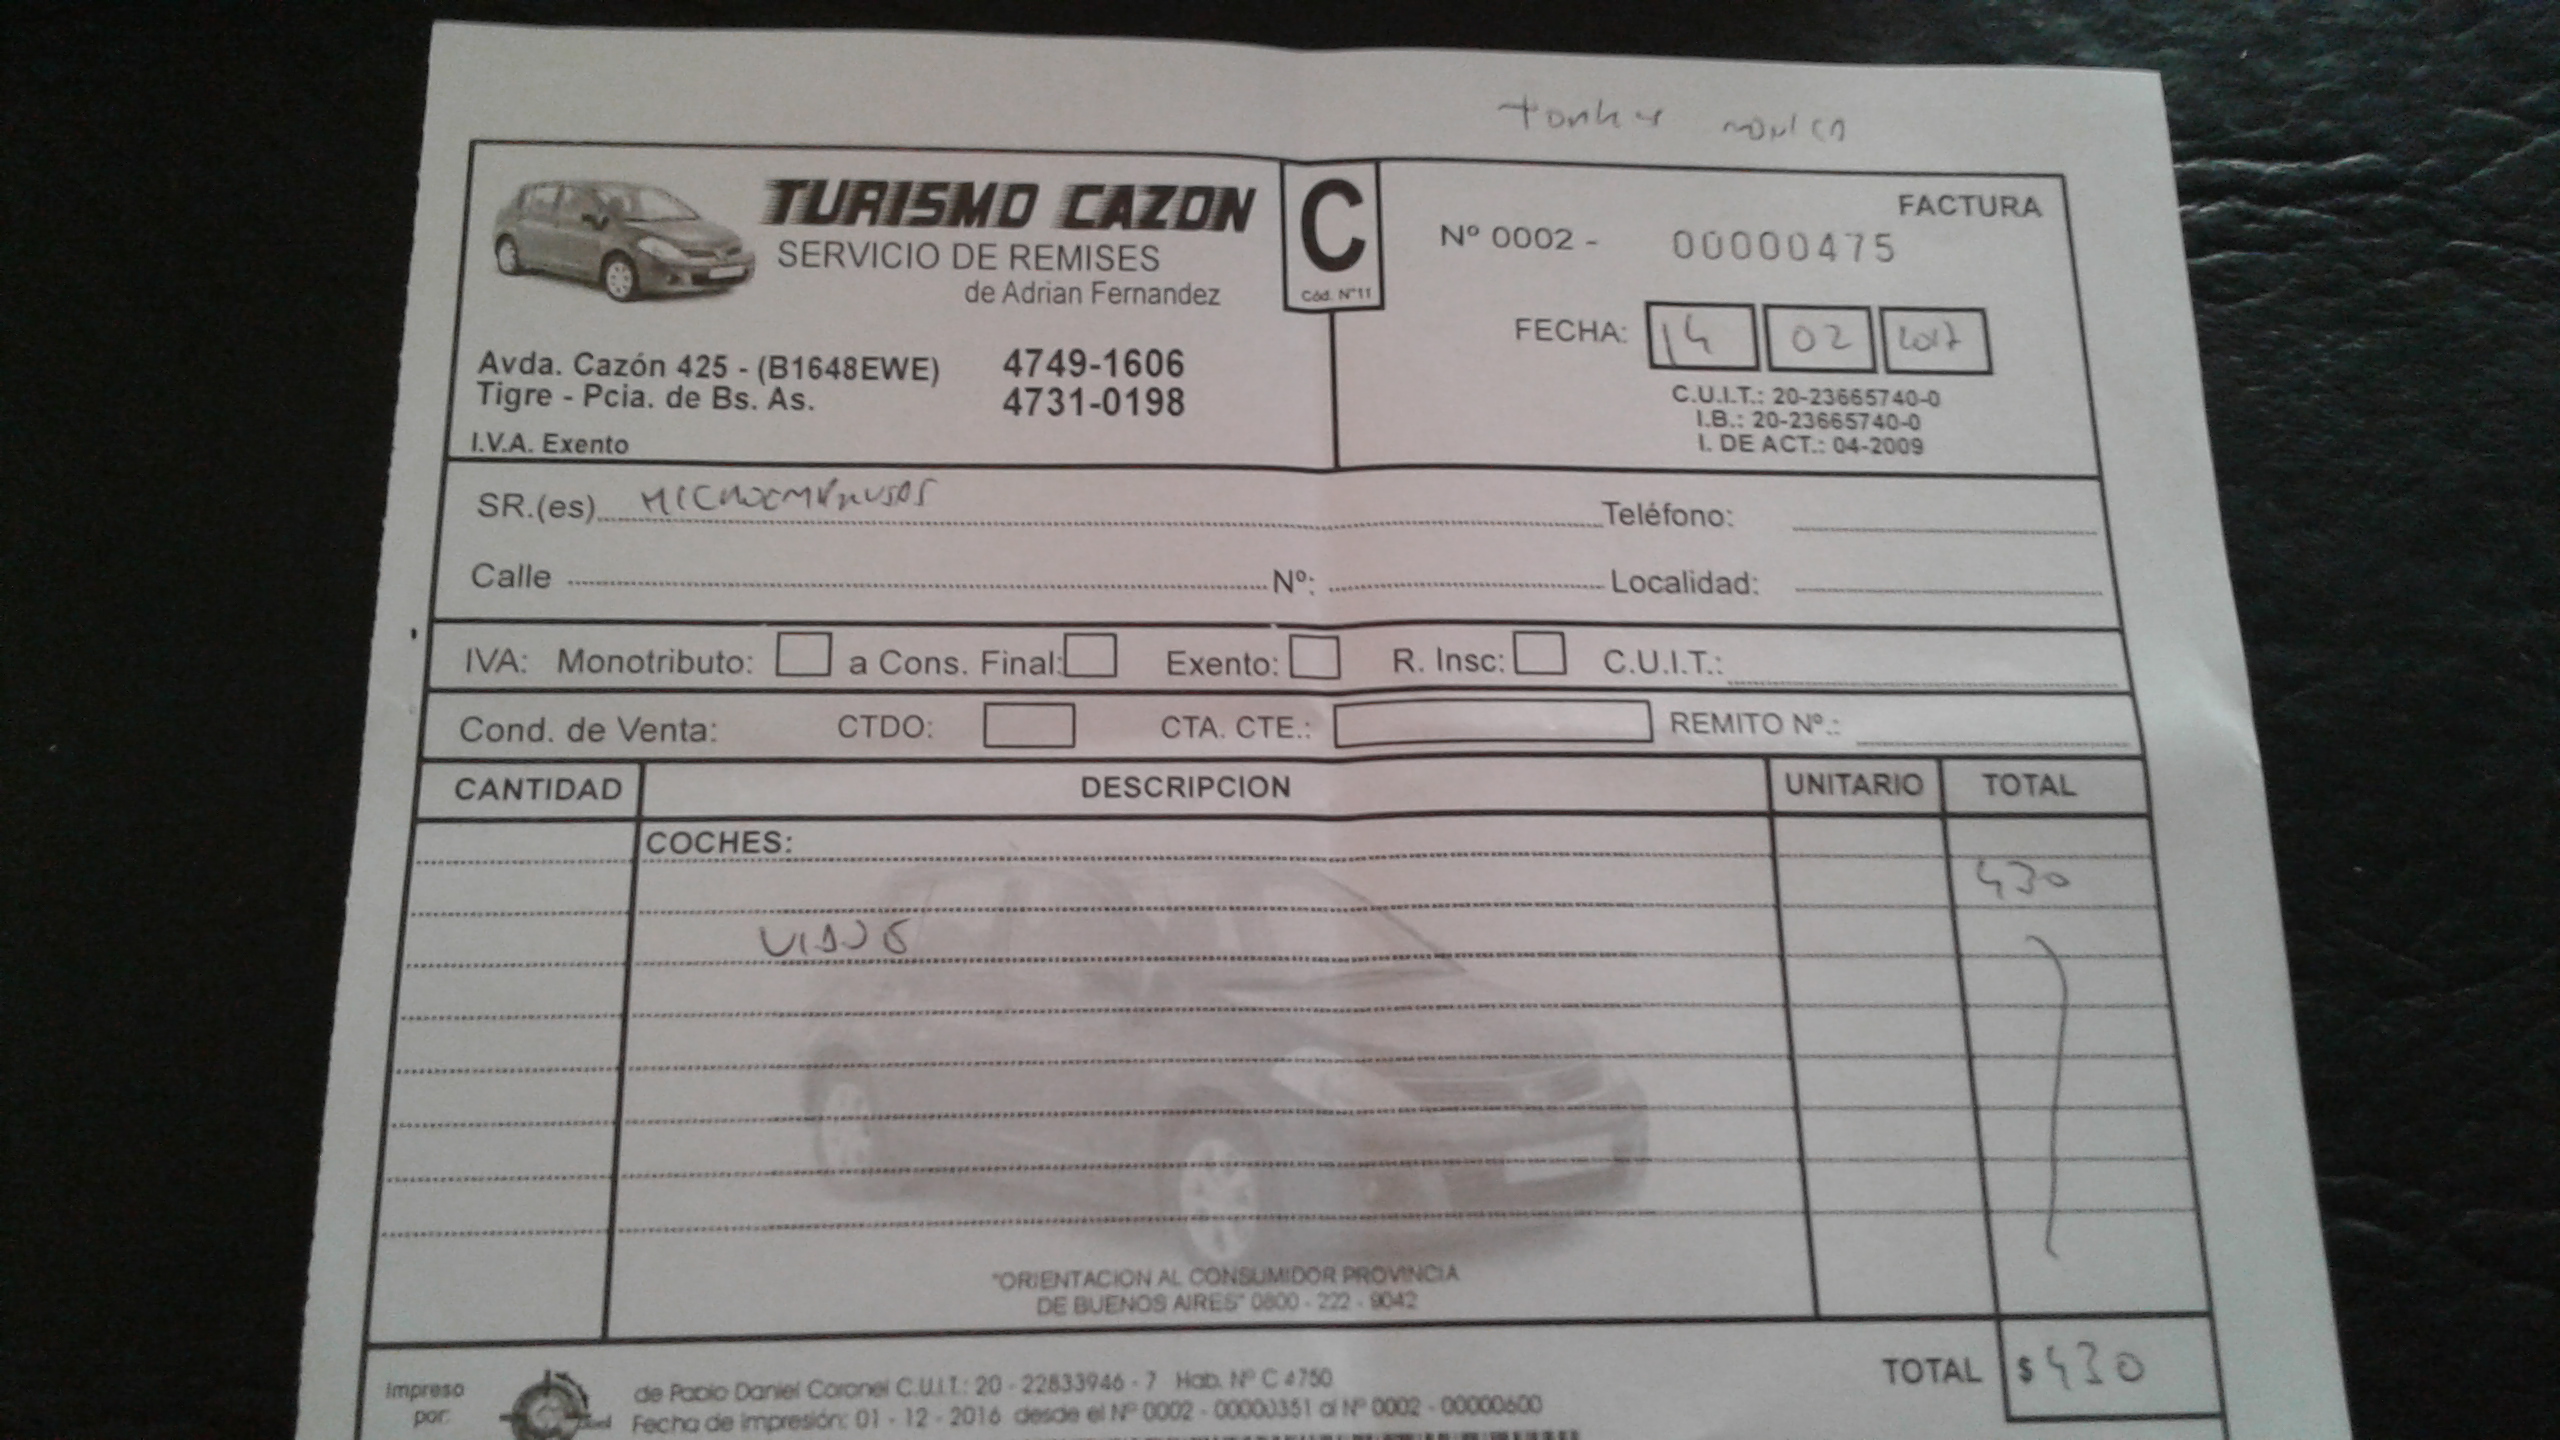 TURISMO CAZON
SERVICIO DE REMISES
de Adrian Fernandez
Avda. Cazón 425 - (B1648EWE) 4749-1606
Tigre - Pcia. de Bs. As. 4731-0198
I.V.A. Exento
C
Cód. N°11
FACTURA
Nº 0002 - 00000475
FECHA: 14 02 2017
C.U.I.T.: 20-23665740-0
I.B.: 20-23665740-0
I. DE ACT.: 04-2009
SR.(es) Teléfono:
Calle Nº: Localidad:
IVA: Monotributo: a Cons. Final: Exento: R. Insc: C.U.I.T.:
Cond. de Venta: CTDO: CTA. CTE.: REMITO Nº.:
CANTIDAD DESCRIPCION UNITARIO TOTAL
COCHES:
430
"ORIENTACION AL CONSUMIDOR PROVINCIA
DE BUENOS AIRES" 0800 - 222 - 9042
TOTAL $ 430
Impreso por: de Pablo Daniel Coronel C.U.I.T.: 20 - 22833946 - 7 Hab. Nº C 4750
Fecha de Impresión: 01 - 12 - 2016 desde el Nº 0002 - 00000351 al Nº 0002 - 00000600